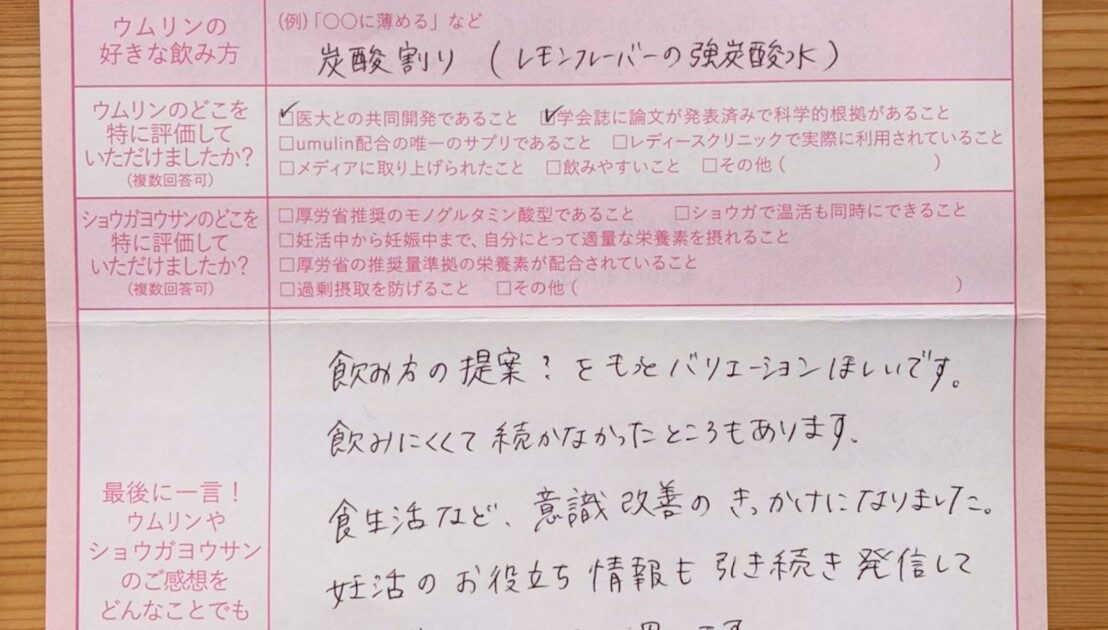 ウムリンの
好きな飲み方
(例)「〇〇に薄める」など
炭酸割り (レモンフレーバーの強炭酸水)
ウムリンのどこを
特に評価して
いただけましたか?
(複数回答可)
✓□医大との共同開発であること ✓□学会誌に論文が発表済みで科学的根拠があること
□umulin配合の唯一のサプリであること □レディースクリニックで実際に利用されていること
□メディアに取り上げられたこと □飲みやすいこと □その他 ( )
ショウガヨウサンのどこを
特に評価して
いただけましたか?
(複数回答可)
□厚労省推奨のモノグルタミン酸型であること □ショウガで温活も同時にできること
□妊活中から妊娠中まで、自分にとって適量な栄養素を摂れること
□厚労省の推奨量準拠の栄養素が配合されていること
□過剰摂取を防げること □その他 ( )
最後に一言!
ウムリンや
ショウガヨウサン
のご感想を
どんなことでも
飲み方の提案?をもっとバリエーションほしいです。
飲みにくくて続かなかったところもあります。
食生活など、意識改善のきっかけになりました。
妊活のお役立ち情報も引き続き発信して